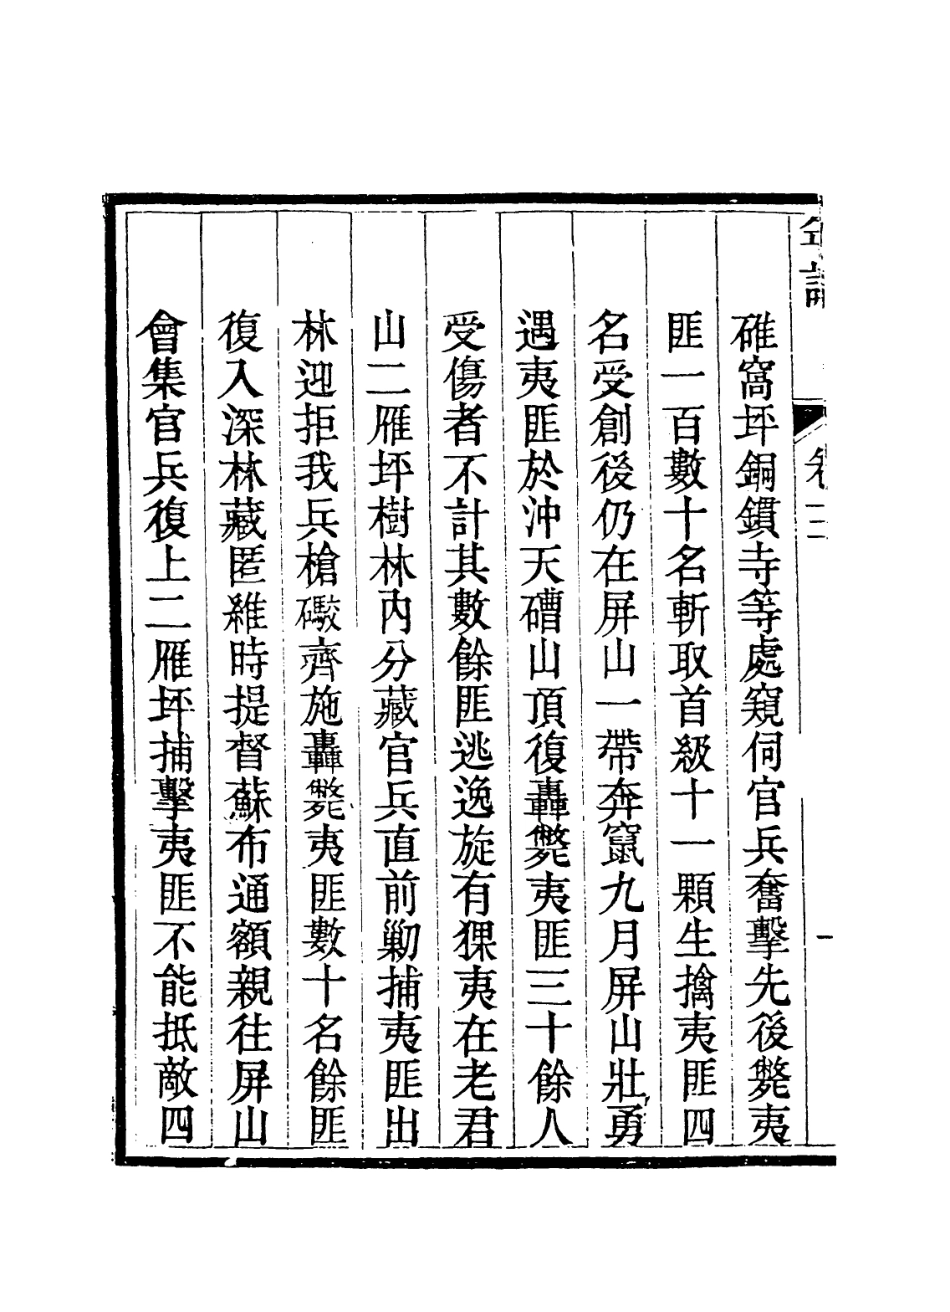 年譜 卷三 一
碓窩坪銅鑽寺等處窺伺官兵奮擊先後斃夷
匪一百數十名斬取首級十一顆生擒夷匪四
名受創後仍在屏山一帶奔竄九月屏山壯勇
遇夷匪於沖天磄山頂復轟斃夷匪三十餘人
受傷者不計其數餘匪逃逸旋有猓夷在老君
山二雁坪樹林內分藏官兵直前勦捕夷匪出
林迎拒我兵槍礮齊施轟斃夷匪數十名餘匪
復入深林藏匿維時提督蘇布通額親往屏山
會集官兵復上二雁坪捕擊夷匪不能抵敵四